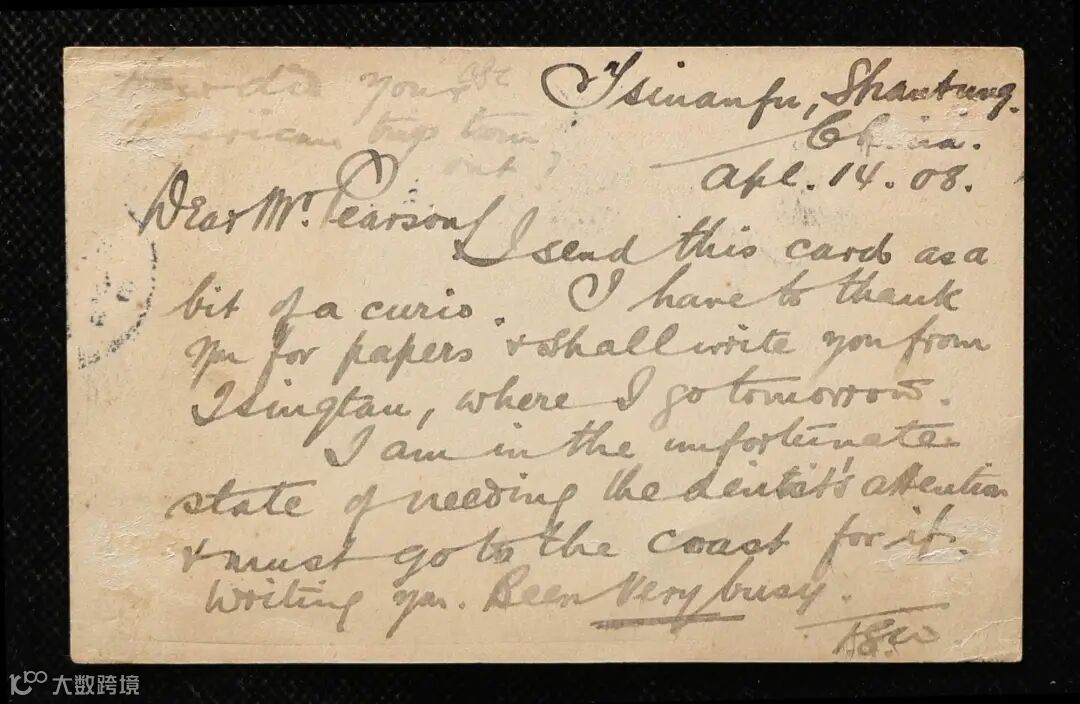 How did your
American trip turn
out?
Tsinanfu, Shantung.
China.
Apl. 14. 08.
Dear Mr. Pearson
I send this card as a
bit of a curio. I have to thank
you for papers & shall write you from
Tsingtau, where I go tomorrow.
I am in the unfortunate
state of needing the dentist's attention
& must go to the coast for it.
Writing you. Been very busy.
大数跨境